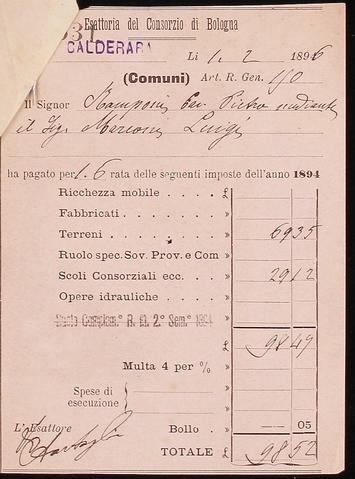 631
Esattoria del Consorzio di Bologna
CALDERARA
Li 1. 2 1896
(Comuni) Art. R. Gen. 190
Il Signor Ramponi Cav. Pietro mediante
il Sig. Marconi Luigi
ha pagato per 1. 6 rata delle seguenti imposte dell'anno 1894
Ricchezza mobile . . . . £
Fabbricati . . . . . . . »
Terreni . . . . . . . . » 6935
Ruolo spec. Sov. Prov. e Com »
Scoli Consorziali ecc. . . . » 2912
Opere idrauliche . . . . »
R. M. 2° Sem.e 1894 »
£ 9847
Multa 4 per % »
Spese di esecuzione »
L'Esattore Bollo . » — 05
TOTALE £ 9852